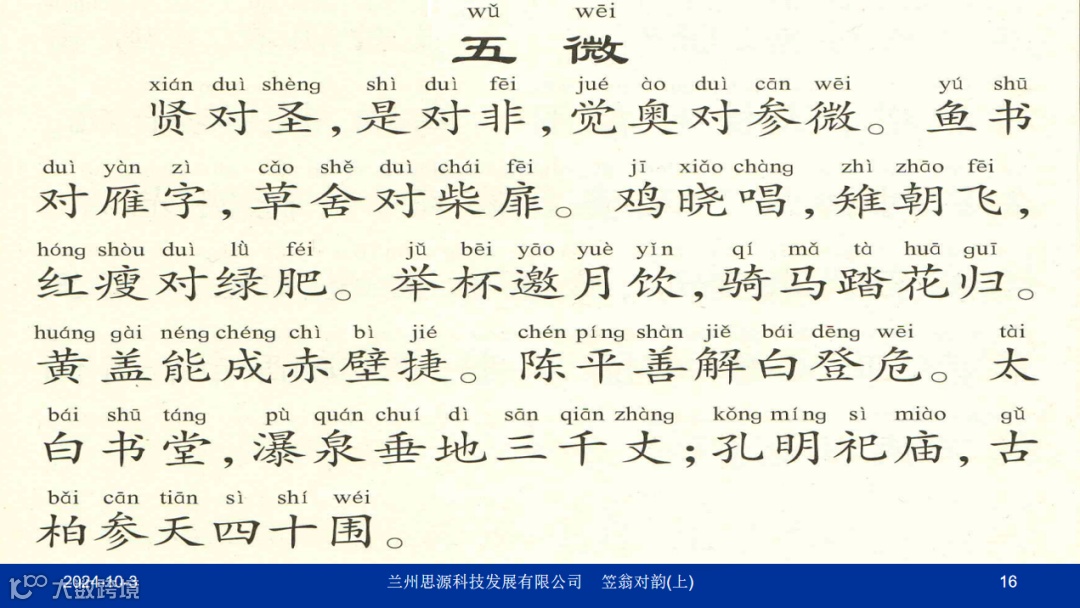 wǔ wēi
五 微
xián duì shèng shì duì fēi jué ào duì cān wēi yú shū
贤对圣,是对非,觉奥对参微。鱼书
duì yàn zì cǎo shě duì chái fēi jī xiǎo chàng zhì zhāo fēi
对雁字,草舍对柴扉。鸡晓唱,雉朝飞,
hóng shòu duì lǜ féi jǔ bēi yāo yuè yǐn qí mǎ tà huā guī
红瘦对绿肥。举杯邀月饮,骑马踏花归。
huáng gài néng chéng chì bì jié chén píng shàn jiě bái dēng wēi tài
黄盖能成赤壁捷。陈平善解白登危。太
bái shū táng pù quán chuí dì sān qiān zhàng kǒng míng sì miào gǔ
白书堂,瀑泉垂地三千丈;孔明祀庙,古
bǎi cān tiān sì shí wéi
柏参天四十围。
2024-10-3 兰州思源科技发展有限公司 笠翁对韵(上) 16
大数跨境